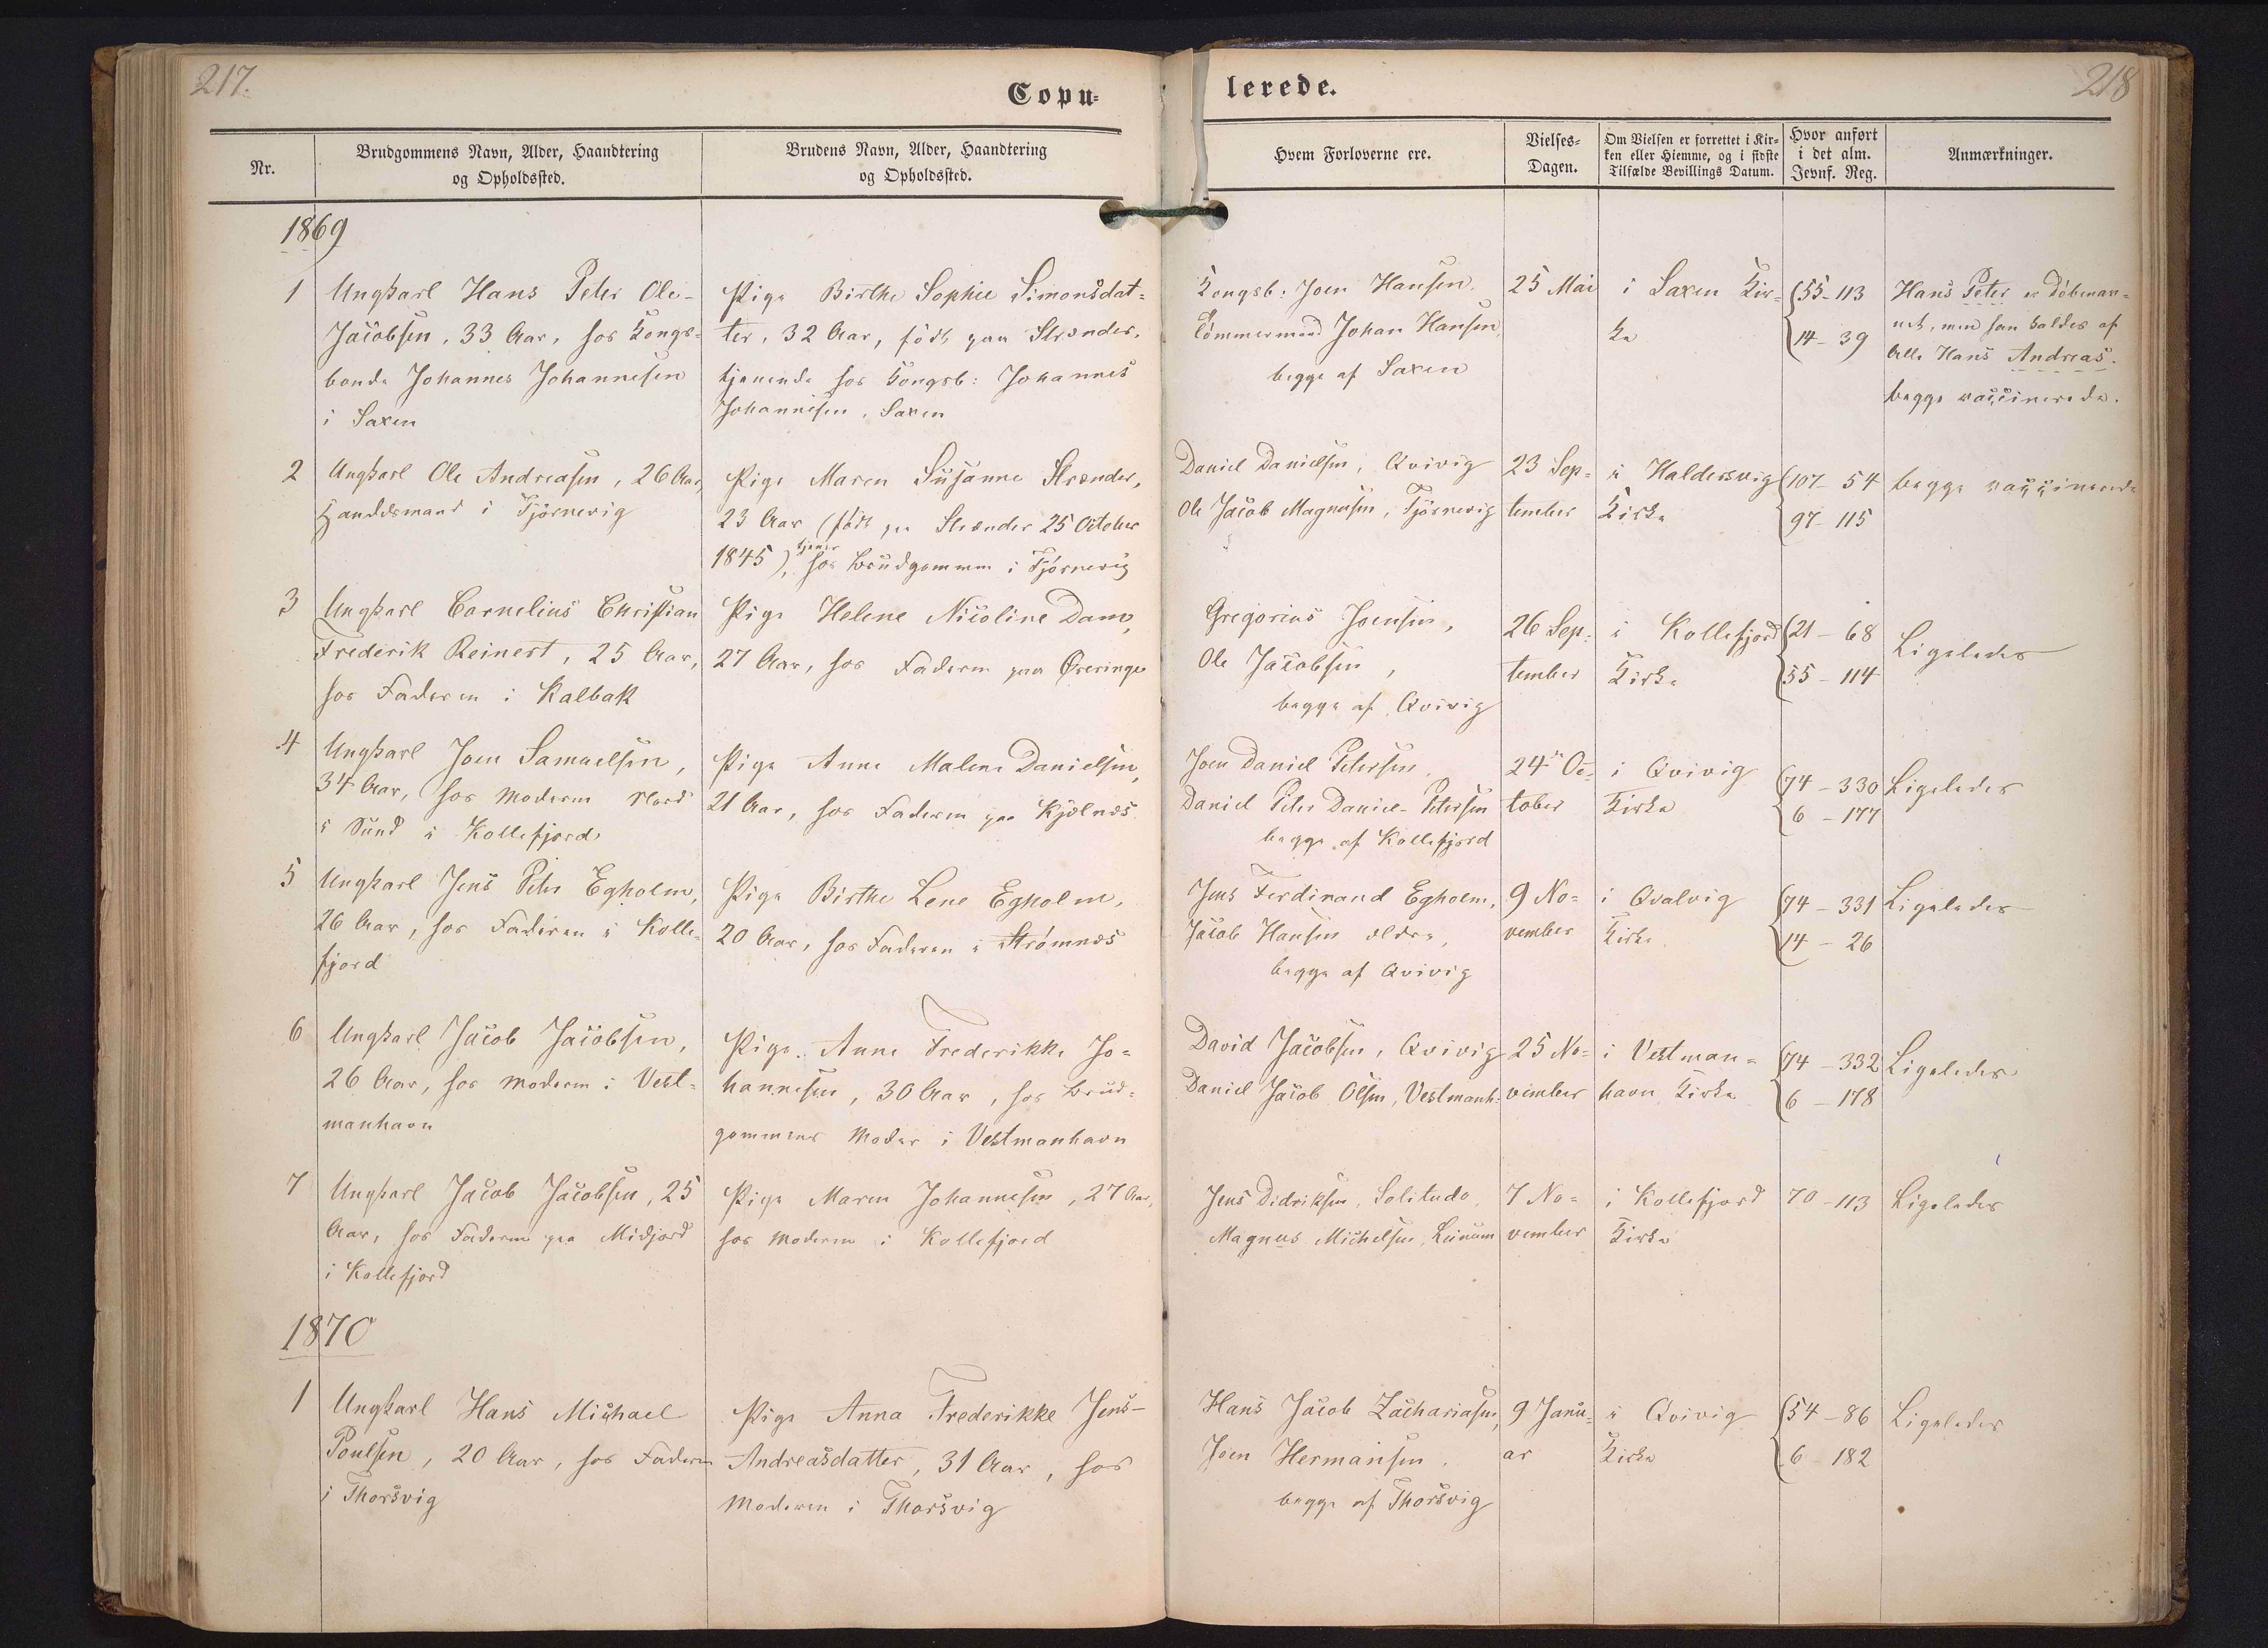 217.
Copu-
Nr.
Brudgommens Navn, Alder, Haandtering
og Opholdssted.
Brudens Navn, Alder, Haandtering
og Opholdssted.
1869
1
Ungkarl Hans Peter Ole-
Jacobsen, 33 Aar, hos Kongs-
bonde Johannes Johannesen
i Saxen
Pige Birthe Sophie Simonsdat-
ter, 32 Aar, födt paa Strænder,
tjenende hos Kongsb: Johannes
Johannesen, Saxen
2
Ungkarl Ole Andreasen, 26 Aar,
Handelsmand i Tjörnevig
Pige Maren Susanne Strænder,
23 Aar (födt paa Strænder 25 October
1845), tjener hos Brudgommen i Tjörnevig
3
Ungkarl Cornelius Christian
Frederik Reinert, 25 Aar,
hos Faderen i Kalbak
Pige Helene Nicoline Dam,
27 Aar, hos Faderen paa Öreringe
4
Ungkarl Joen Samuelsen,
34 Aar, hos Moderen Nord
i Sund i Kollefjord
Pige Anne Malene Danielsen,
21 Aar, hos Faderen paa Kjölnæs
5
Ungkarl Jens Peter Egholm,
26 Aar, hos Faderen i Kolle-
fjord
Pige Birthe Lene Egholm,
20 Aar, hos Faderen i Strömnæs
6
Ungkarl Jacob Jacobsen,
26 Aar, hos Moderen i Vest-
manhavn
Pige Anne Frederikke Jo-
hannesen, 30 Aar, hos Brud-
gommens Moder i Vestmanhavn
7
Ungkarl Jacob Jacobsen, 25
Aar, hos Faderen paa Midjord
i Kollefjord
Pige Maren Johannesen, 27 Aar,
hos Moderen i Kollefjord
1870
1
Ungkarl Hans Michael
Poulsen, 20 Aar, hos Faderen
i Thorsvig
Pige Anna Frederikke Jens-
Andreasdatter, 31 Aar, hos
Moderen i Thorsvig
lerede.
218
Hvem Forloverne ere.
Vielses-
Dagen.
Om Vielsen er forrettet i Kir-
ken eller Hiemme, og i sidste
Tilfælde Bevillings Datum.
Hvor anført
i det alm.
Jevnf. Reg.
Anmærkninger.
Kongsb: Joen Hansen,
Tömmermand Johan Hansen,
begge af Saxen
25 Mai
i Saxen Kir-
ke
55-113
14-39
Hans Peter er Döbenav-
net, men han kaldes af
Alle Hans Andreas.
begge vaccinerede.
Daniel Danielsen, Qvivig
Ole Jacob Magnusen, Tjörnevig
23 Sep-
tember
i Haldersvig
Kirke
107-54
97-115
begge vaccinerede
Gregorius Joensen,
Ole Jacobsen,
begge af Qvivig
26 Sep-
tember
i Kollefjord
Kirke
21-68
55-114
Ligeledes
Joen Daniel Petersen,
Daniel Peter Daniel-Petersen
begge af Kollefjord
24 Oc-
tober
i Qvivig
Kirke
74-330
6-177
Ligeledes
Jens Ferdinand Egholm,
Jacob Hansen ældre,
begge af Qvivig
9 No-
vember
i Qvalvig
Kirke
74-331
14-26
Ligeledes
David Jacobsen, Qvivig
Daniel Jacob Olsen, Vestmanh:
25 No-
vember
i Vestman-
havn Kirke
74-332
6-178
Ligeledes
Jens Didriksen, Solitude,
Magnus Michelsen, Leinum
7 No-
vember
i Kollefjord
Kirke
70-113
Ligeledes
Hans Jacob Zachariasen,
Joen Hermansen,
begge af Thorsvig
9 Janu-
ar
i Qvivig
Kirke
54-86
6-182
Ligeledes